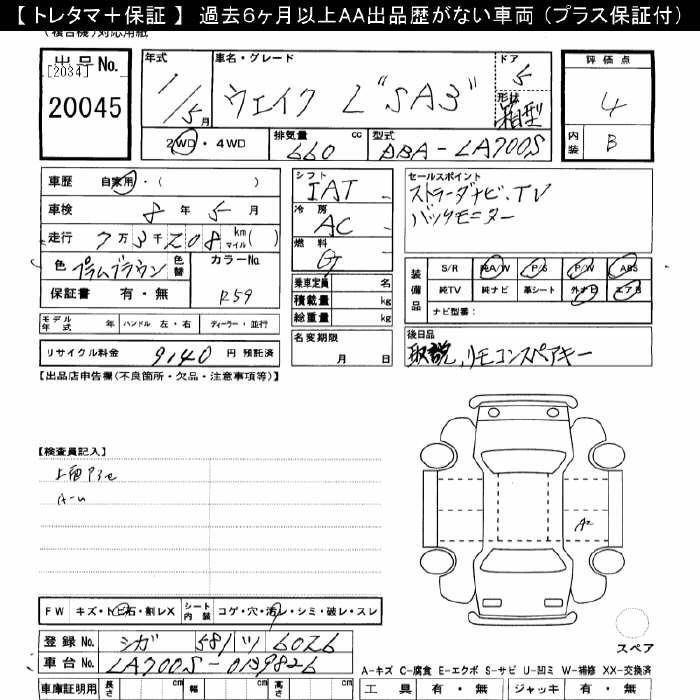 【 トレタマ＋保証 】 過去６ヶ月以上AA出品歴がない車両（プラス保証付）
(複合機)対応用紙
出品No. [2034] 20045
年式 1/5月
車名・グレード ウェイク L"SA3"
ドア 5
形状 箱型
評価点 4
内装 B
2WD・4WD
排気量 660 cc
型式 DBA-LA700S
車歴 自家用・( )
車検 8年5月
走行 7万3千208km マイル( )
色 プラムブラウン 色替 カラーNo. R59
保証書 有・無
モデル年式 年 ハンドル 左・右 ディーラー・並行
リサイクル料金 9140 円 預託済
シフト IAT
冷房 AC
燃料 G
乗車定員 名
積載量 kg
総重量 kg
名変期限 月 日
セールスポイント
ストラーダナビ、TV
バックモニター
装備品 S/R 純A/W P/S P/W ABS
純TV 純ナビ 革シート 外ナビ エアB
ナビ型番：
後日品
取説、リモコンスペアキー
【出品店申告欄(不良箇所・欠品・注意事項等)】
【検査員記入】
A-u
A2
FW キズ・トビ石・割レX シート内装 コゲ・穴・汚レ・シミ・破レ・スレ
スペア
登録No. シガ 581 ツ 6026
車台No. LA700S-0139826
A-キズ C-腐食 E-エクボ S-サビ U-凹ミ W-補修 XX-交換済
車庫証明用 長さ cm 幅 cm 高さ cm 工具 有・無 ジャッキ 有・無